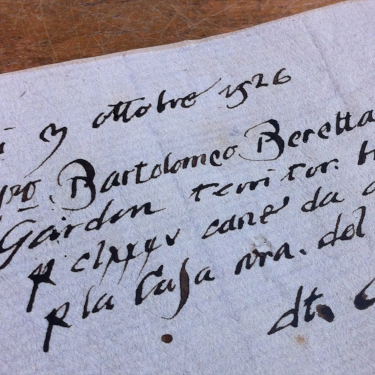 i 3 ottobre 1526
pº. Bartolomeo Beretta
Gardon territor.
p clxxxv cane da
p la Casa nra. del
dt.